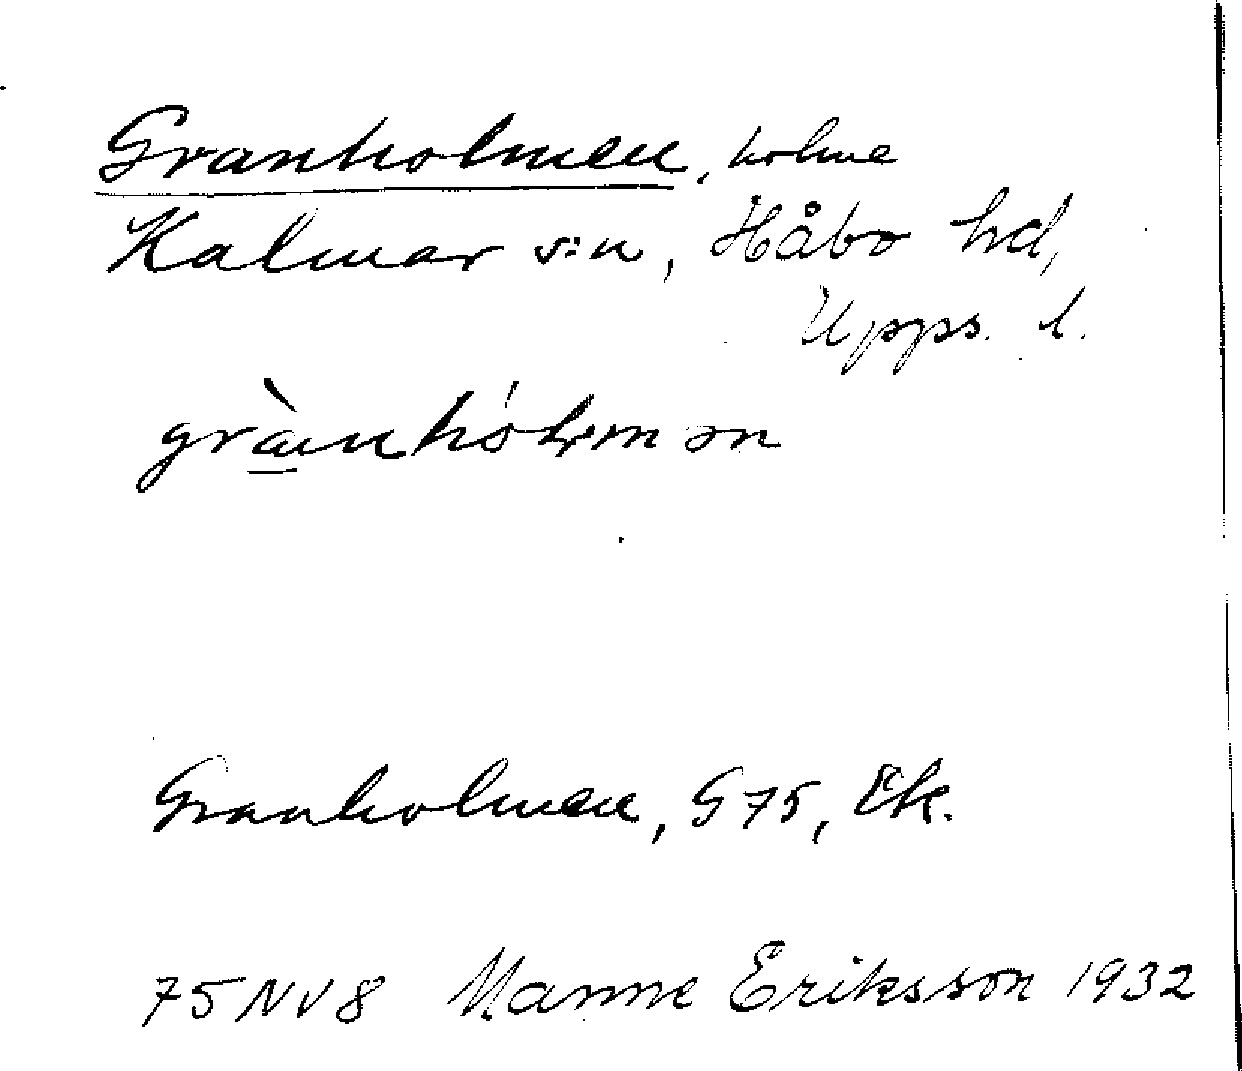 Granholmen, holme
Kalmar s:n, Håbo hd,
Upps. l.
Granholmen, G 75, Ek.
75 NV 8 Manne Eriksson 1932